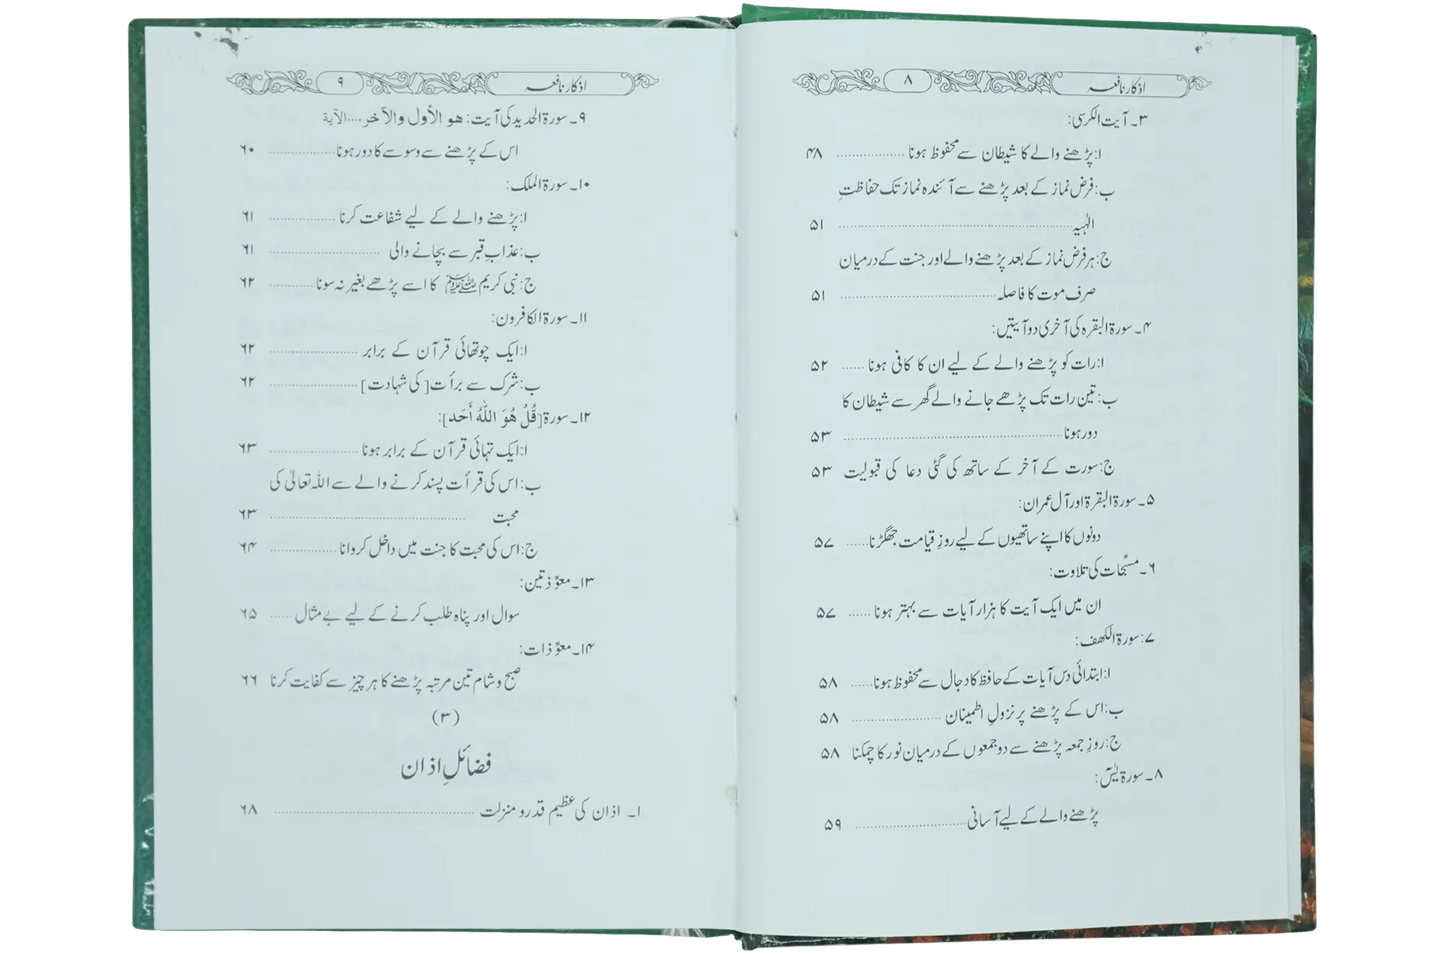 اذکار نافعہ ۸
۳۔ آیت الکرسی:
ا: پڑھنے والے کا شیطان سے محفوظ ہونا ................ ۴۸
ب: فرض نماز کے بعد پڑھنے سے آئندہ نماز تک حفاظتِ
الٰہیہ ................ ۵۱
ج: ہر فرض نماز کے بعد پڑھنے والے اور جنت کے درمیان
صرف موت کا فاصلہ ................ ۵۱
۴۔ سورۃ البقرہ کی آخری دو آیتیں:
ا: رات کو پڑھنے والے کے لیے ان کا کافی ہونا ...... ۵۲
ب: تین رات تک پڑھے جانے والے گھر سے شیطان کا
دور ہونا ................ ۵۳
ج: سورت کے آخر کے ساتھ کی گئی دعا کی قبولیت ۵۳
۵۔ سورۃ البقرۃ اور آل عمران:
دونوں کا اپنے ساتھیوں کے لیے روزِ قیامت جھگڑنا ...... ۵۷
۶۔ مسبِّحات کی تلاوت:
ان میں ایک آیت کا ہزار آیات سے بہتر ہونا ...... ۵۷
۷: سورۃ الکھف:
ا: ابتدائی دس آیات کے حافظ کا دجال سے محفوظ ہونا ...... ۵۸
ب: اس کے پڑھنے پر نزولِ اطمینان ................ ۵۸
ج: روزِ جمعہ پڑھنے سے دو جمعوں کے درمیان نور کا چمکنا ۵۸
۸۔ سورۃ یٰسٓ:
پڑھنے والے کے لیے آسانی ................ ۵۹
اذکار نافعہ ۹
۹۔ سورۃ الحدید کی آیت: هو الأول والآخر .... الآية
اس کے پڑھنے سے وسوسے کا دور ہونا ................ ۶۰
۱۰۔ سورۃ الملک:
ا: پڑھنے والے کے لیے شفاعت کرنا ................ ۶۱
ب: عذابِ قبر سے بچانے والی ................ ۶۱
ج: نبی کریم ﷺ کا اسے پڑھے بغیر نہ سونا ................ ۶۲
۱۱۔ سورۃ الکافرون:
ا: ایک چوتھائی قرآن کے برابر ................ ۶۲
ب: شرک سے برأت [کی شہادت] ................ ۶۲
۱۲۔ سورۃ [قُلْ هُوَ اللّٰهُ أَحَد]:
ا: ایک تہائی قرآن کے برابر ہونا ................ ۶۳
ب: اس کی قرأت پسند کرنے والے سے اللہ تعالیٰ کی
محبت ................ ۶۳
ج: اس کی محبت کا جنت میں داخل کروانا ................ ۶۴
۱۳۔ معوِّذتین:
سوال اور پناہ طلب کرنے کے لیے بے مثال ...... ۶۵
۱۴۔ معوِّذات:
صبح و شام تین مرتبہ پڑھنے کا ہر چیز سے کفایت کرنا ۶۶
(۳)
فضائلِ اذان
۱۔ اذان کی عظیم قدر و منزلت ................ ۶۸